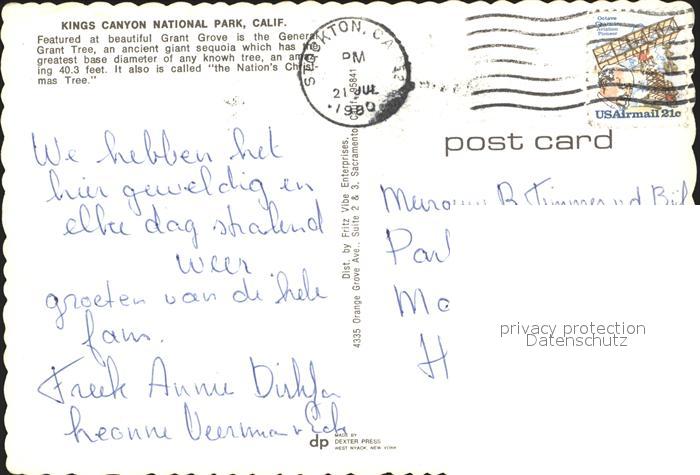 KINGS CANYON NATIONAL PARK, CALIF.
Featured at beautiful Grant Grove is the General
Grant Tree, an ancient giant sequoia which has the
greatest base diameter of any known tree, an amaz-
ing 40.3 feet. It also is called "the Nation's Christ-
mas Tree."
STOCKTON, CA
PM
21 JUL
1980
Octave Chanute
Aviation Pioneer
USAirmail 21c
post card
We hebben het
hier geweldig en
elke dag stralend
weer
groeten van de hele
fam.
Freek Annie Dirkjan
Leonne Veerman
Dist. by Fritz Vibe Enterprises,
4335 Orange Grove Ave., Suite 2 & 3, Sacramento, Calif. 95841
B. Timmer
Par
Mo
H
privacy protection
Datenschutz
dp MADE BY
DEXTER PRESS
WEST NYACK, NEW YORK